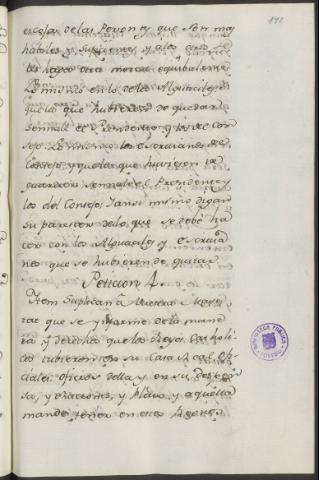 191
escojan de las Personas que son mas
habiles y suficientes, y a los otros se
les haga otra merced equibalente,
lo mismo en lo de los Alguaciles, y
que los que hubieren de quedar se
señale el Presidente, y los del Con
sejo. Lo mismo los escriuanos del
Consejo, y que los que huvieren
quedar los señale el Presidente, y
los del Consejo, y ansi mismo digan
su parescer de lo que se debe ha
cer con los Alguaciles, y escriua
nos que se hubieren de quitar.
Peticion 4
Item Suplican à Vuestra Mages
tad que se ynforme de la mane
ra y derecho que los Reyes Catholi
cos tubieron en su Casa Real, ofi
ciales, oficios della y en su despen
sa, y raciones, y Plato, y aquella
mande tener en estos Reynos
BIBLIOTECA PUBLICA
TOLEDO